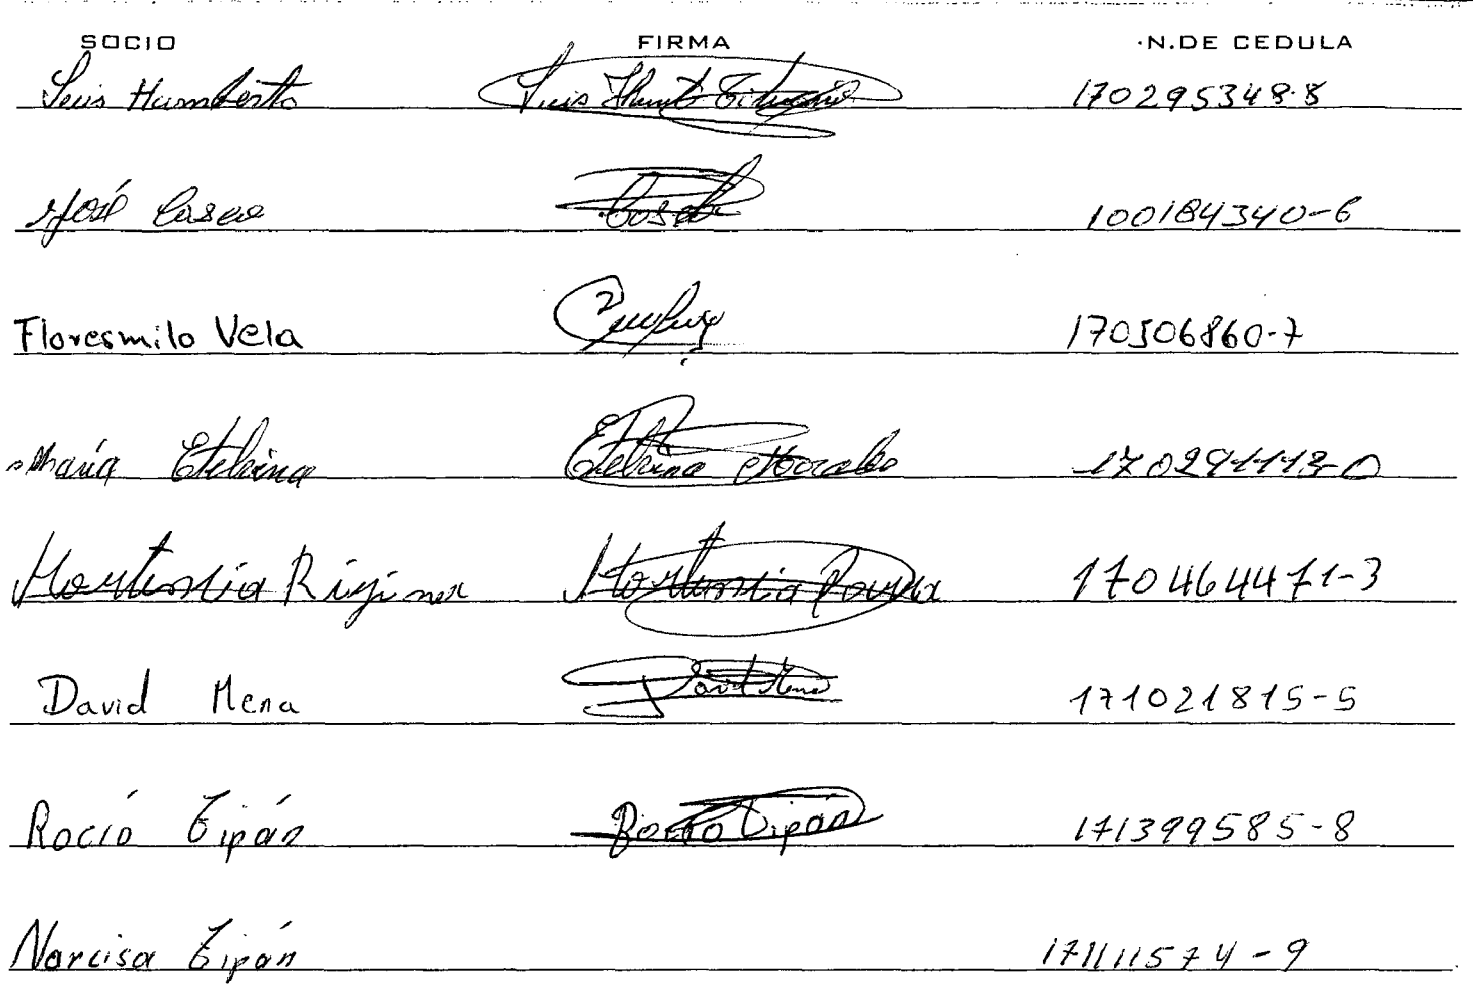 SOCIO FIRMA N.DE CEDULA
Luis Humberto Luis 170295348-8
José Casco 100184340-6
Floresmilo Vela 170506860-7
María Etelvina Etelvina Morales 170291113-0
Hortensia Rigina Hortensia 170464471-3
David Mena David Mena 171021815-5
Rocío Tipán Rocío Tipán 171399585-8
Narcisa Tipán 171111574-9